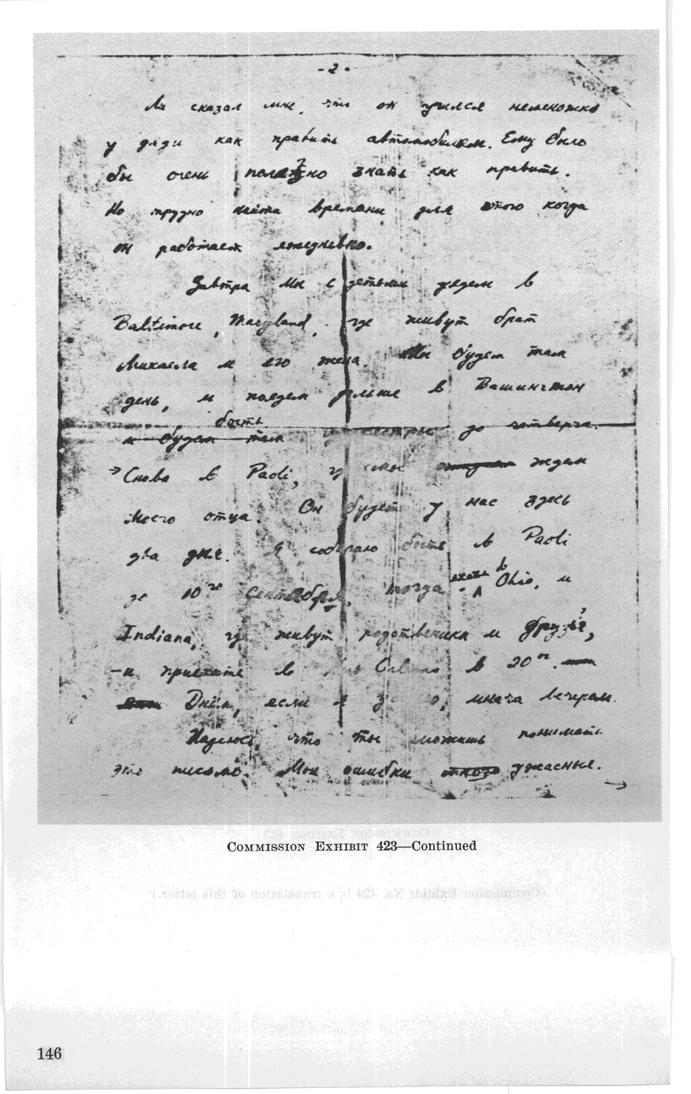 - 2 -
Ли сказал мне, что он учился неменожко
у дяди как править автомобилем. Ему было
бы очень полезно знать как править.
Но трудно найта времени для этого когда
он работает ежедневно.
Завтра мы с детьми уедем в
Baltimore, Maryland, где живут брат
Микаела и его жена. Мы будем там
день, и поедем дальше в Вашингтон
быть
и будем там у сестры до четверга.
→ Снова в Paoli, мы ждем
моего отца. Он будет у нас здесь
два дня. Я собираю быть в Paoli
до 10го сентября, тогда ехать в Ohio, и
Indiana, где живут родственики и друзья,
- и приехать в Orleans в 20ое.
Днём, если я, иначе вечером.
Надеюсь, что ты можешь понимать
это письмо. Мои ошибки ужасные.
→
COMMISSION EXHIBIT 423—Continued
(Commission Exhibit No. 424 is a translation of this letter.)
146